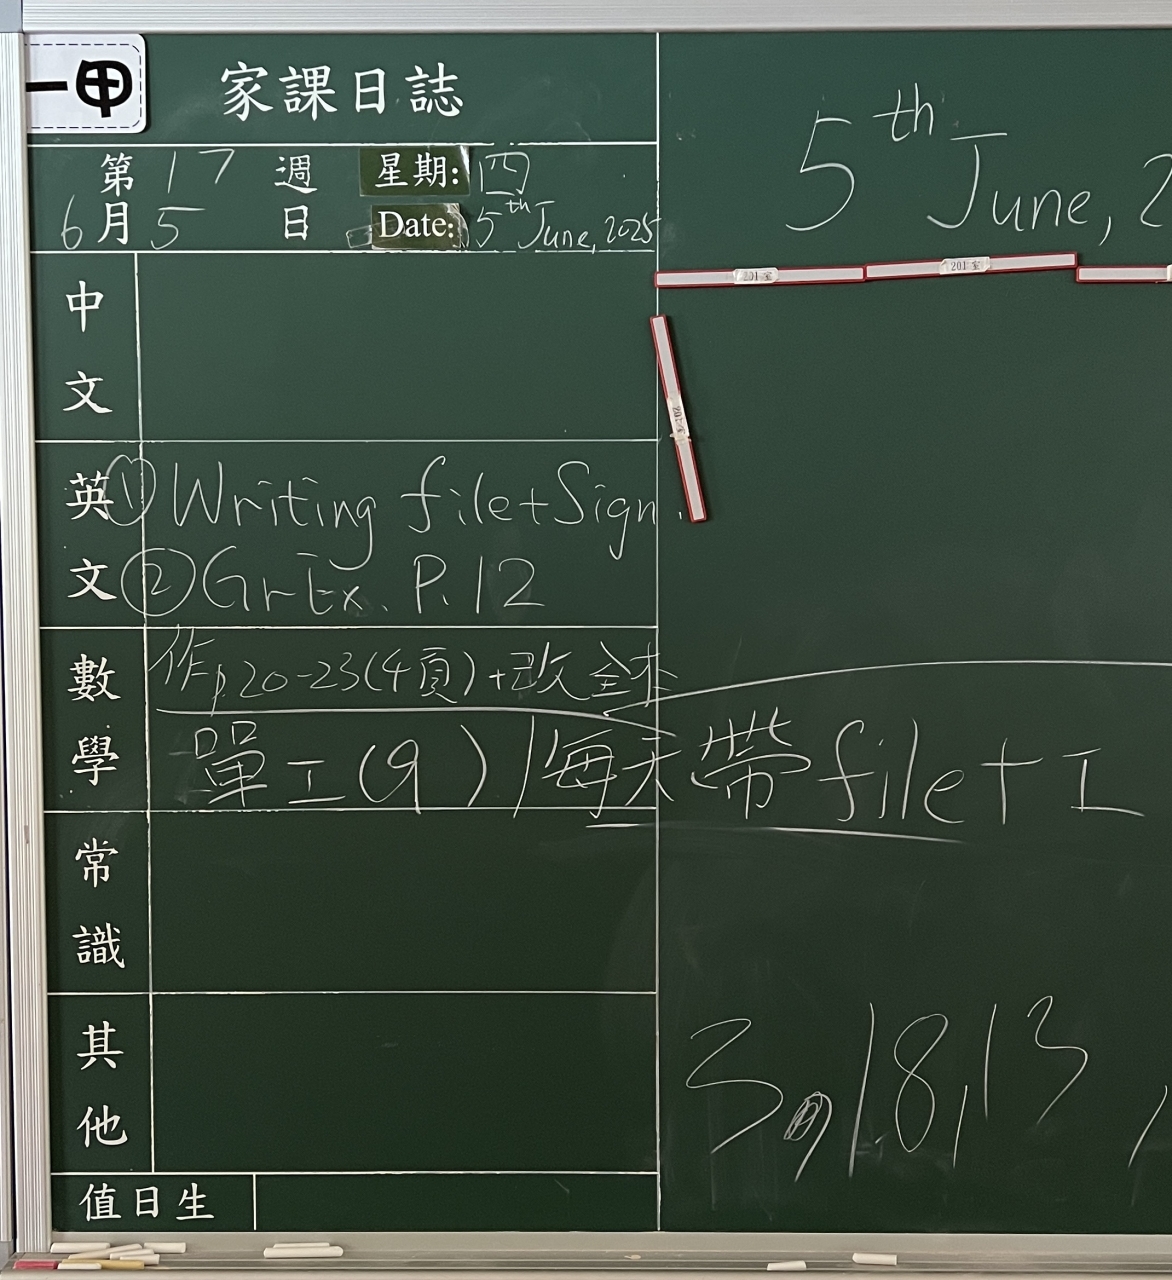 一甲
家課日誌
第17週 星期:四
6月5日 Date: 5th June, 2025
5th June, 2
201室
201室
中文
英文
① Writing file+Sign.
② Gr Ex. P.12
數學
作p.20-23(4頁)+改全本
單工(9)/每天帶file+工
常識
其他
3,18,13,
值日生